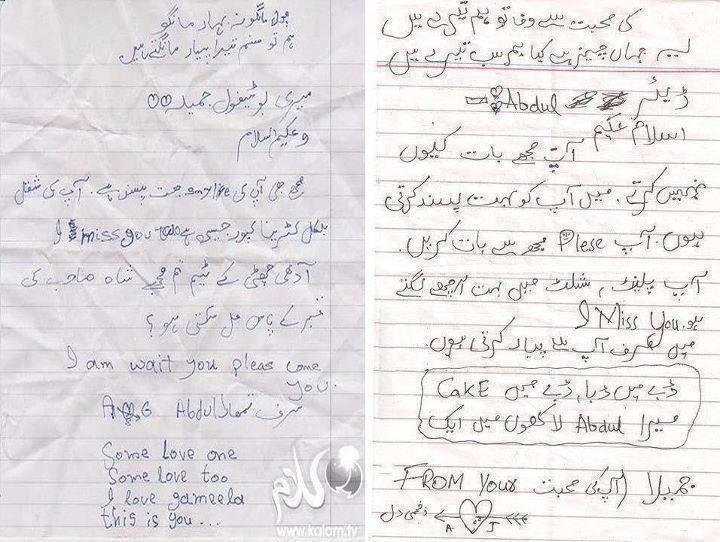 پھول مانگو نہ بہار مانگو
ہم تو صنم تیرا پیار مانگتے ہیں
میری بوٹیفول جمیلہ
وعلیکم اسلام
مجھے جی آپ کی smile بہت پسند ہے. آپ کی شکل
بلکل کٹرینا کپور جیسی ہے I miss you
آدھی چھٹی کے ٹیم تم مجھے شاہ صاحب کی
قبر کے پاس مل سکتی ہو؟
I am wait you pleas come
you.
صرف تمھارا Abdul A G
Some Love one
Some love too
I love gameela
this is you...
کلام
www.kalam.tv
کی محبت سے وفا تو ہم
یہ جہاں چیز ہے کیا ہم سب
ڈیئر Abdul
اسلام علیکم
آپ مجھے بات کیوں
نہیں کرتے. میں آپ کو بہت پسند کرتی
ہوں. آپ Plese مجھ سے بات کریں.
آپ شلٹ میں بہت اچھے لگتے
ہو. I Miss You
میں صرف آپ سے پیار کرتی ہوں.
ڈبے میں ڈبا, ڈبے میں CaKE
میرا Abdul لاکھوں میں ایک
جمیلا (آپ کی محبت FROM Your
زخمی دل A J